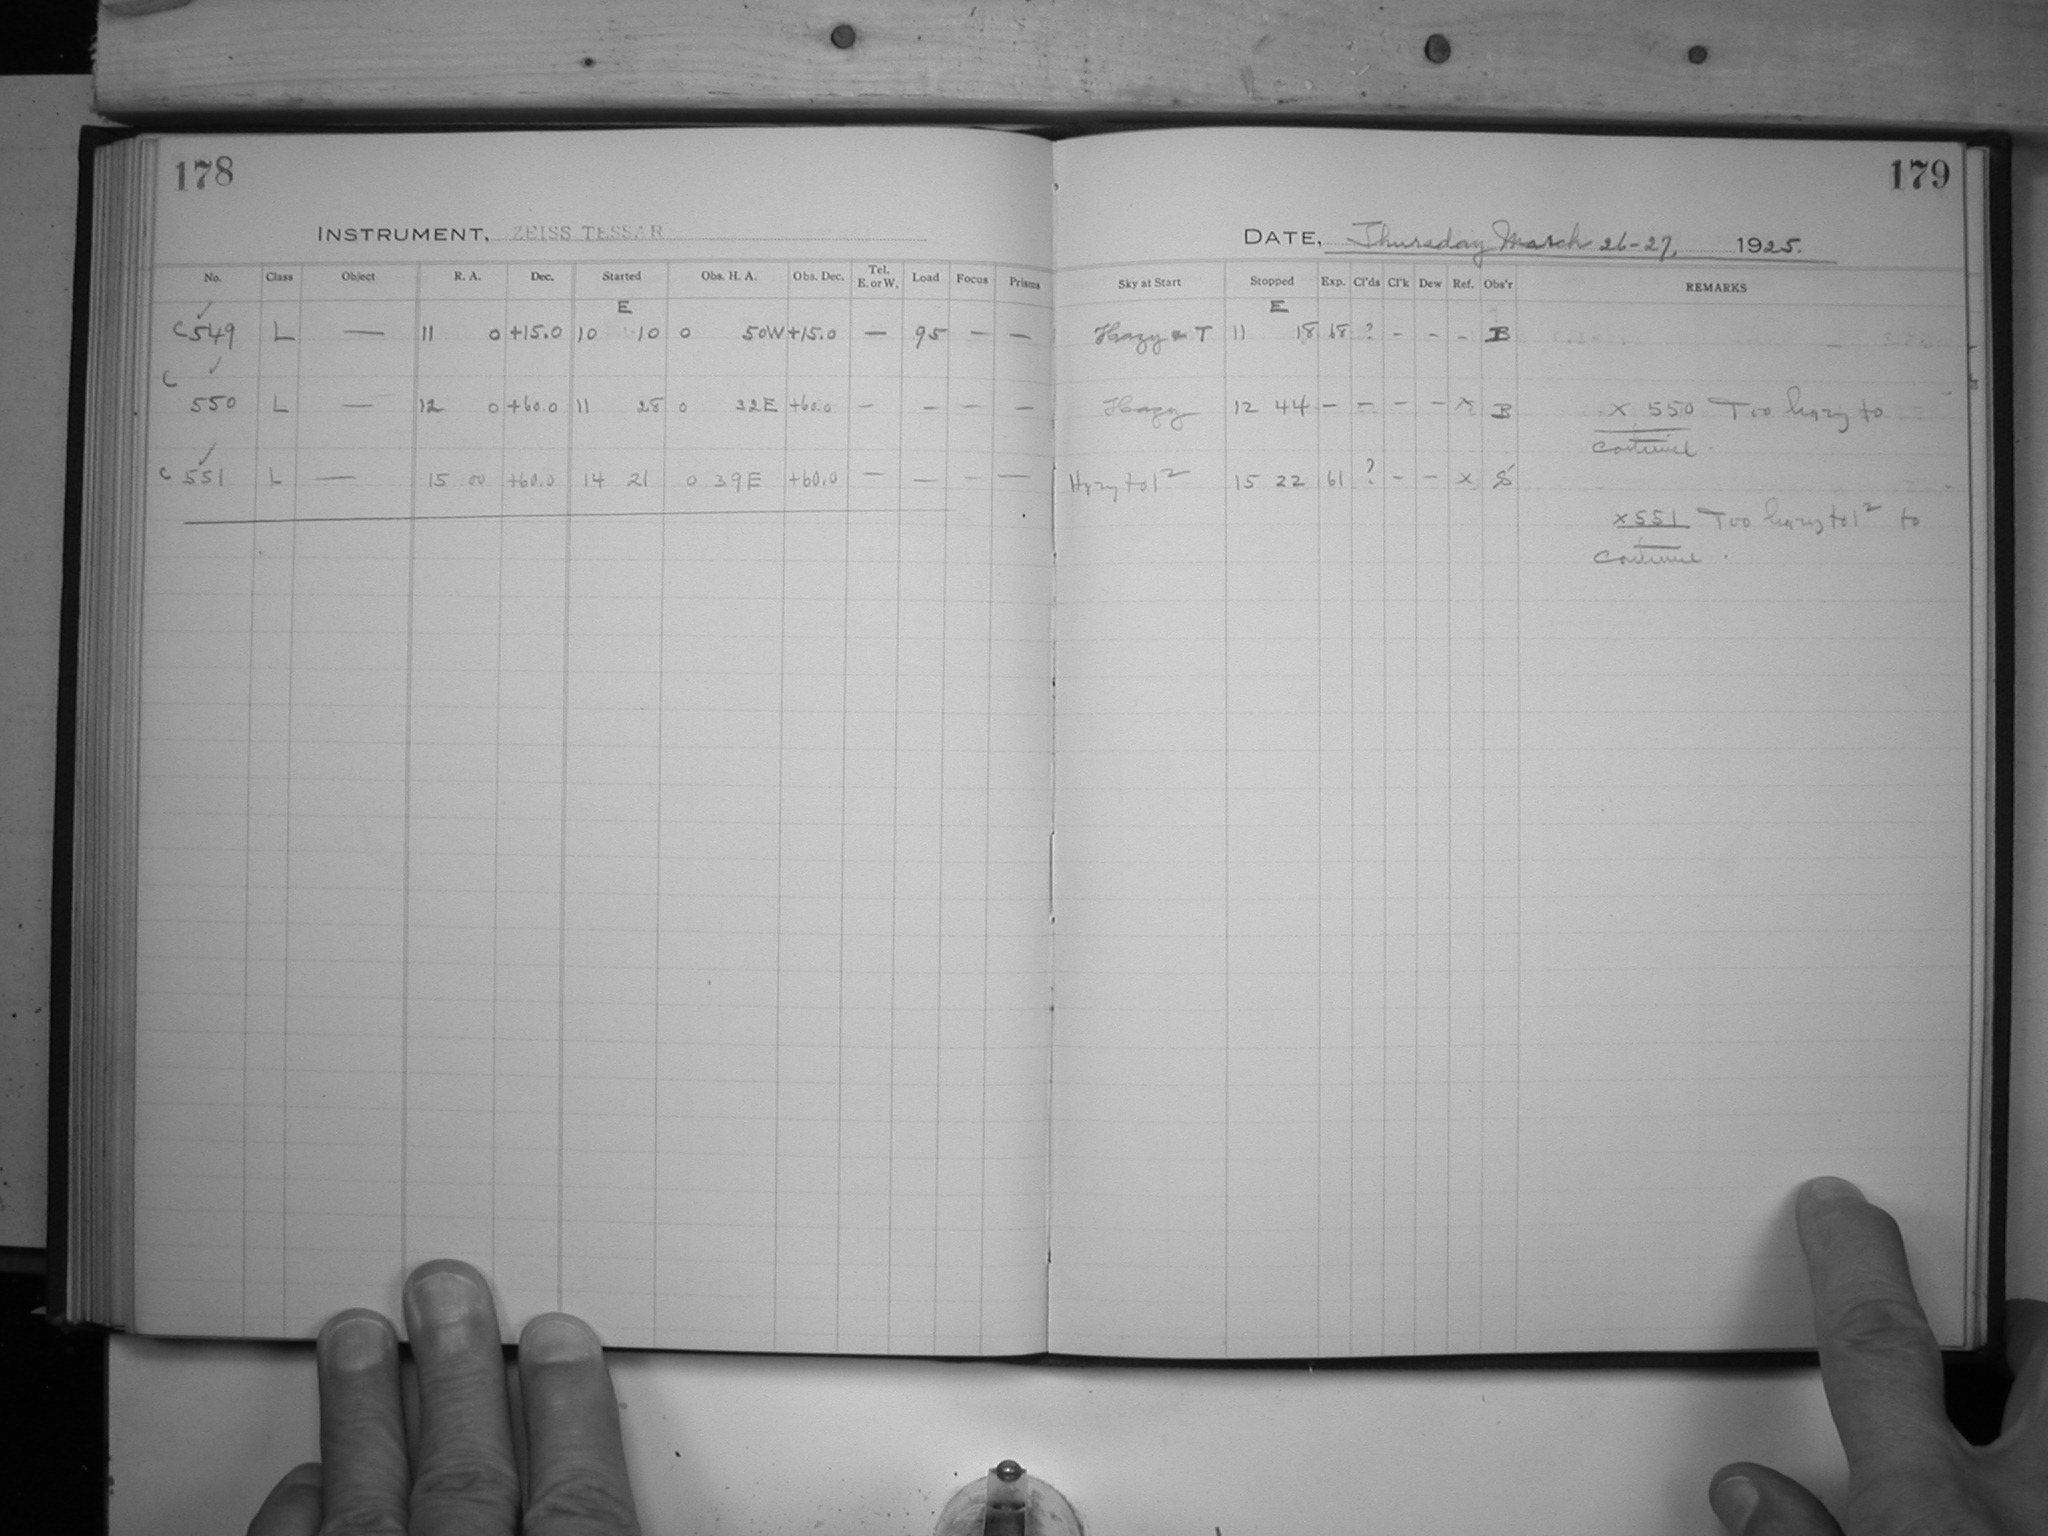 178
INSTRUMENT, ZEISS TESSAR
No. Class Object R. A. Dec. Started Obs. H. A. Obs. Dec. Tel. E. or W. Load Focus Prisms
E
C 549 L — 11 0 +15.0 10 10 0 50W +15.0 — 95 — —
C 550 L — 12 0 +60.0 11 28 0 32E +60.0 — — — —
C 551 L — 15 00 +60.0 14 21 0 39E +60.0 — — — —
179
DATE, Thursday March 26-27, 1925.
Sky at Start Stopped Exp. Cl'ds Cl'k Dew Ref. Obs'r REMARKS
E
Hazy T 11 18 68 ? - - - B
Hazy 12 44 — — - — x B x 550 Too hazy to
continue.
Hazy to 1² 15 22 61 ? - — x S
x 551 Too hazy to 1² to
continue.